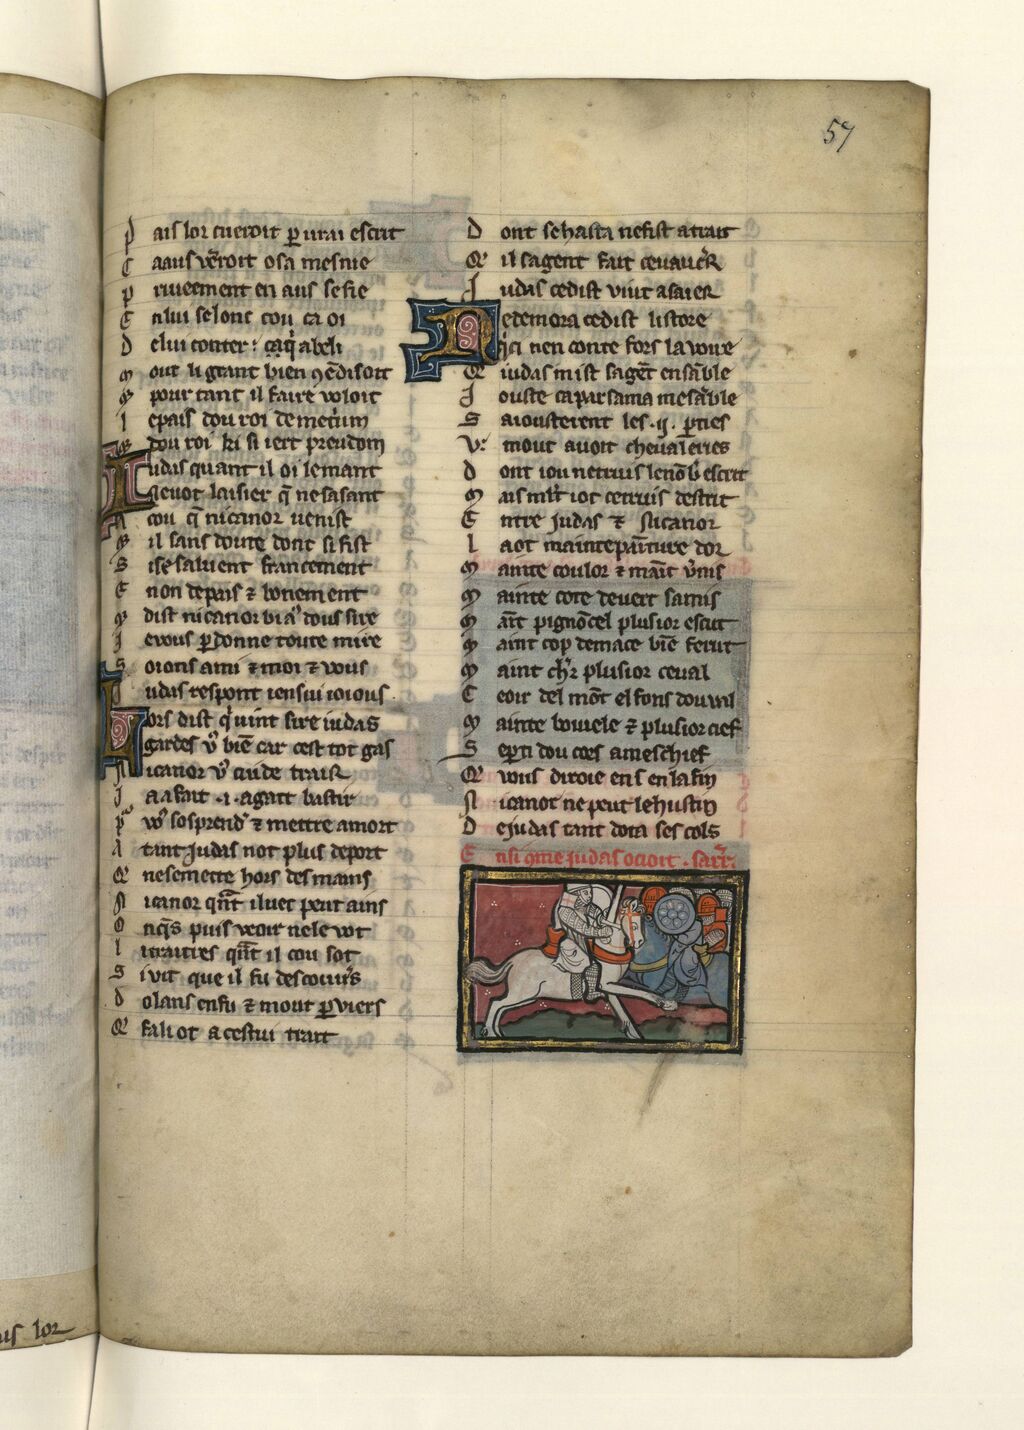 57
p ais lor cueroit p urai escrit
C aaus v̄roit o sa mesnie
p riveement en aus se fie
E n lui se lont cou ca oi
D elui conter caq̄ abeli
m out li grant bien 9mēdisoit
m pour tant il faire voloit
l e pais dou roi demetrium
dou roi ki si iert preudom
I udas quant il oi le mant
ne vot laisier q̄ ne sasant
A cou q̄ nicanor venist
il sans doute dont si fist
S i se saluent francement
E non de pais ⁊ bonement
dist nicanor biaˢ dous sire
J e vous pdonne toute mire
S oions ami ⁊ moi ⁊ vous
I udas respont ien sui ioious
Lors dist quint sire iudas
gardes v̄ biē car cest tot gas
N icanor v̄ cuide traiR
J a a fait .i. agait bastir
P vō sosprendˢ ⁊ mettre a mort
A tant Judas not plus deport
Q ne se mette hors des mains
N icanor qn̄t il uet peut ains
O ncq̄s puis veoir ne le vot
l i traitres qn̄t il cou sot
S i vit que il fu descouvˢs
D olans en fu ⁊ mout pviers
Q fali ot a cestui trait
D ont se hasta ne fist atrait
Q il sa gent fait cevaucˢR
J udas ce dist vint asaier
Ne demora ce dist listore
q̄ ci nen conte fors la voire
Q iudas mist sa gēt ensāble
J ouste capharsama mesāble
S aiousterent les .ij. pties
V mout avoit chevaleries
D ont iou ne truis le nōb̄ escrit
M ais ml̄t iot ce truis destrit
E ntre Judas ⁊ Nicanor
l a ot mainte painture dor
M ainte coulor ⁊ maīt v̄nis
M ainte cote de vert samis
M aīt pignoncel plusior escut
M aint cop de mace biē ferut
M aint chˢr plusior ceval
C eoir del mōt el fons dou val
M ainte bouiele ⁊ plusior cief
S epti dou cors a meschief
Q vous diroie en s en la fin
N icanor ne peut le hustin
D e judas tant dota ses cols
E nsi 9me judas ocioit . sarr̄.
lor